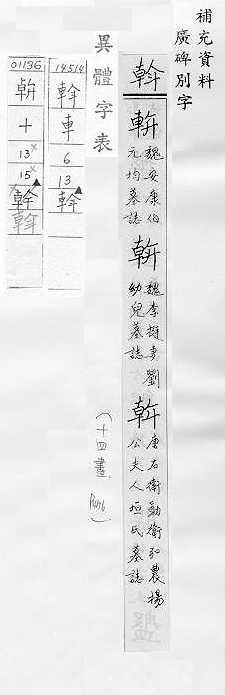 補充資料
廣碑別字
幹
魏安康伯
元均墓誌
魏李挺妻劉
幼兒墓誌
唐右衛勳衛弘農楊
公夫人垣氏墓誌
異體字表
(十四畫)
14514
車
6
13
01136
十
13
15